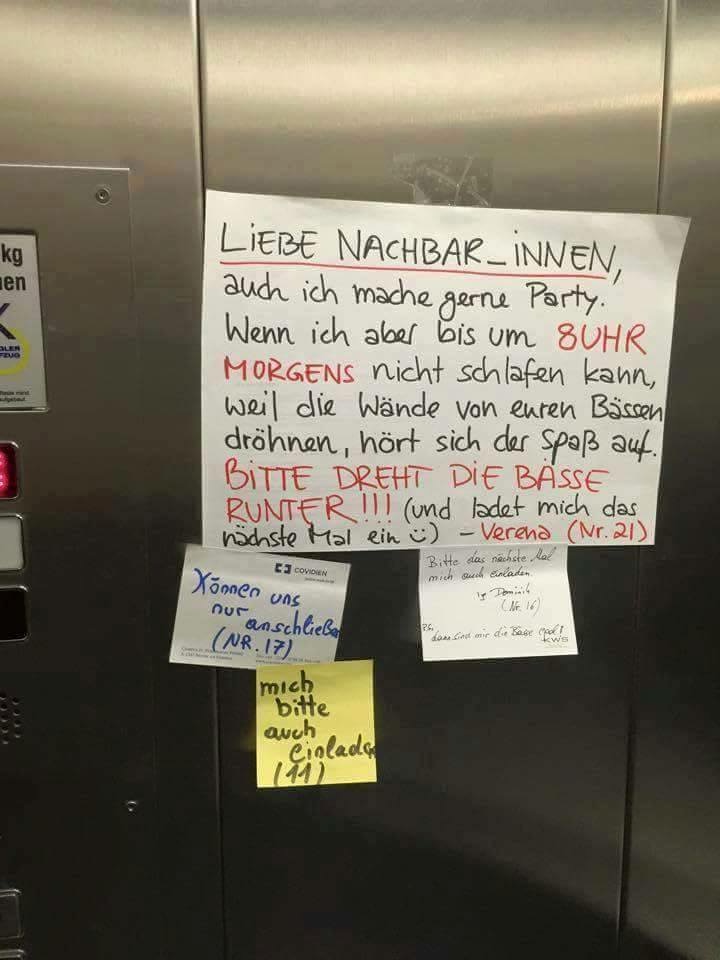 kg
nen
LiEBE NACHBAR_iNNEN,
auch ich mache gerne Party.
Wenn ich aber bis um 8UHR
MORGENS nicht schlafen kann,
weil die Wände von euren Bässen
dröhnen, hört sich der Spaß auf.
BiTTE DREHT DiE BÄSSE
RUNTER!!! (und ladet mich das
nächste Mal ein ü) – Verena (Nr. 21)
COVIDIEN
Können uns
nur
anschließen
(NR. 17)
Bitte das nächste Mal
mich auch einladen.
Dominik
(Nr. 16)
dann sind mir die Bässe egal!
kws
mich
bitte
auch
einladen
(11)